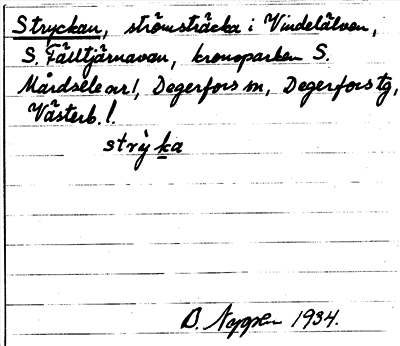 Stryckan, strömsträcka i Vindelälven,
S. Fälltjärnavan, kronoparken S.
Mårdsele arl, Degerfors sn, Degerfors tg,
Västerb. l.
strỳka
1934.